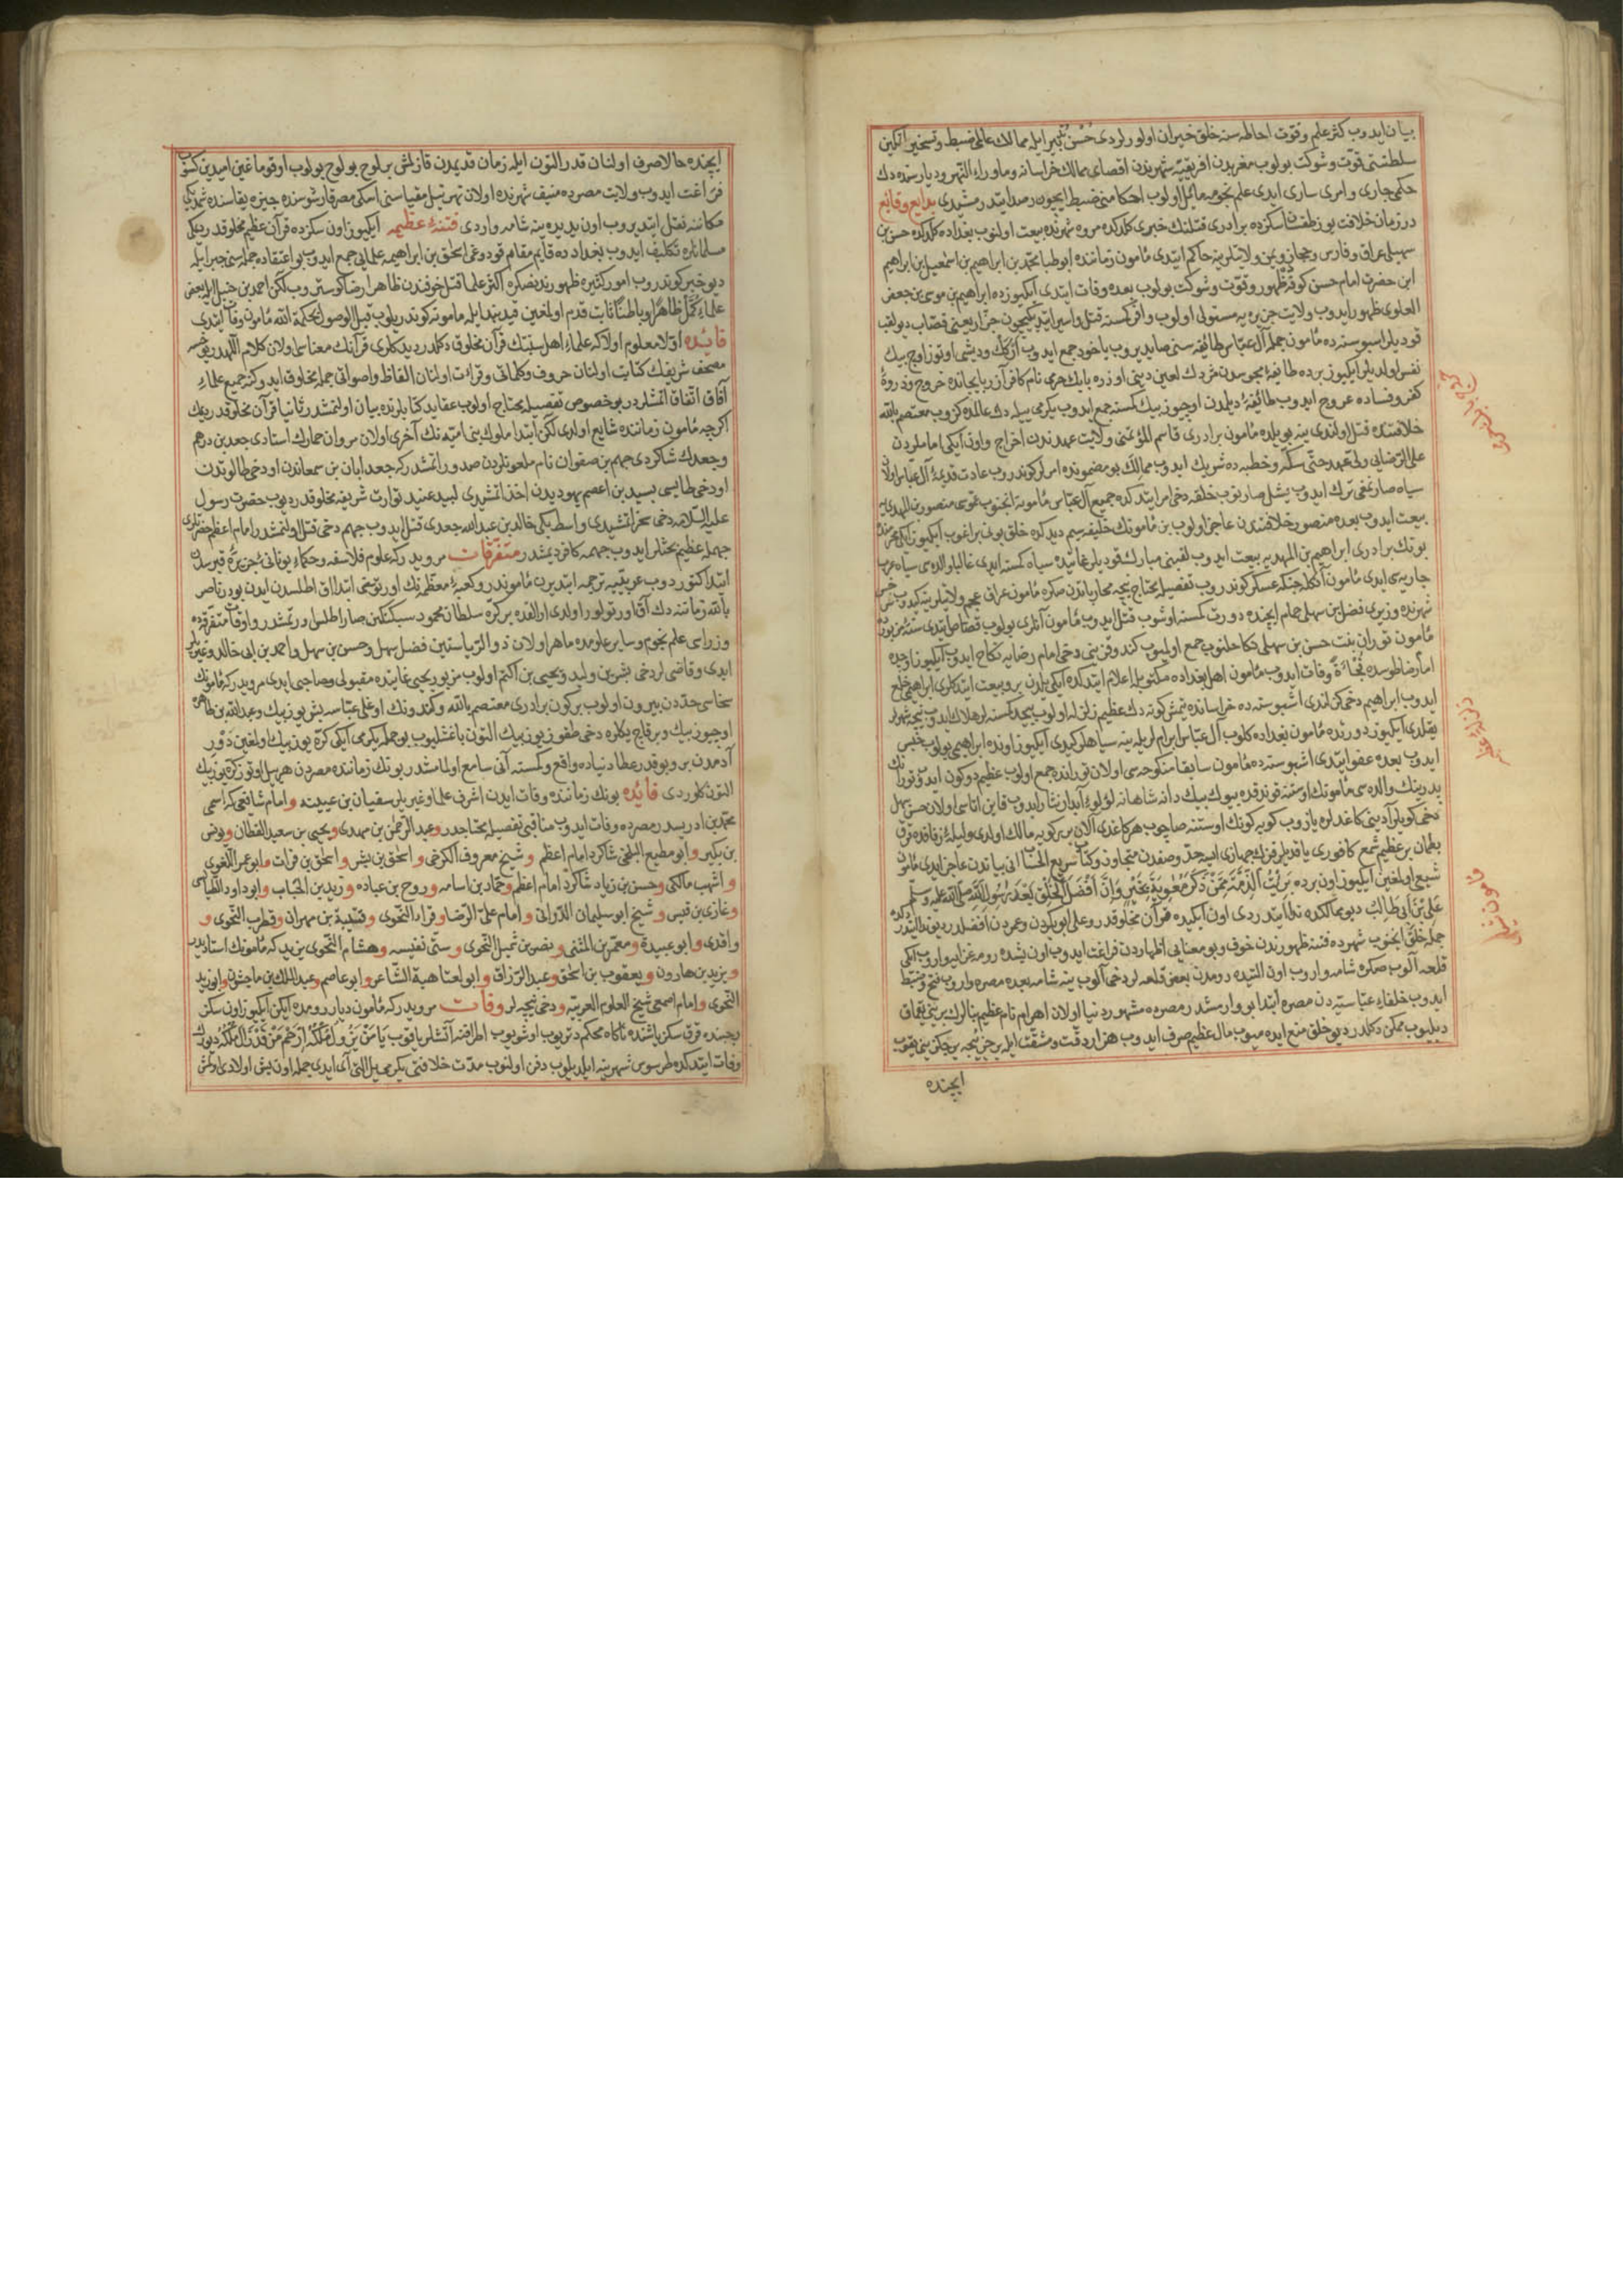 بیان ایدوب کثرت علم و قوت احاطه سنه خلق حیران اولورلردی حسن تدبیر ایله ممالك عالمی ضبط و تسخیر
سلطنتی قوت و شوکت بولوب مغربدن افریقیه شهرندن اقصای ممالك خراسانه و ماوراء النهر و دیار سنده دك
حکمی جاری و امری ساری ایدی علم نجومه مائل اولوب احکامنی ضبط ایچون رصد ایتدرمشیدی بدایع وقایع
در زمان خلافت یوز طقسان سکزده برادری قتلنك خبری کلدکده مروه شهرنده بیعت اولنوب بغداده کلدکده حسن بن
سهیلی عراق و فارس و حجاز و یمن ولایتلرینه حاکم ایتدی مأمون زماننده ابو طبا محمد بن ابراهیم بن اسمعیل بن ابراهیم
ابن حضرت امام حسن کوفه ده ظهور و قوت و شوکت بولوب بعده وفات ایتدی ایکیوزده ابراهیم بن موسی بن جعفر
العلوی ظهور ایدوب ولایت جزیره یه مستولی اولوب وافر کسنه قتل و اسیر ایتدیکیچون جزار یعنی قصاب دیو لقب
قودیلر اشبو سنه ده مأمون جمله آل عباس طائفه سنی صایدیروب باخود جمع ایدوب ارکك و دیشی اوتوز اوچ بیك
نفس اولدیلر ایکیوز برده طایفهٔ مجوسدن مزدك لعین دینی اوزره بابك خرمی نام کافر آذربایجانده خروج و ذروهٔ
کفر و فساده عروج ایدوب طائفهٔ دیلمدن اوچیوز بیك کسنه جمع ایدوب یکرمی ییله دك عالمده کزوب معتصم بالله
خلافتنده قتل اولندی ینه بو ییلده مأمون برادری قاسم المؤتمنی ولایت عهدندن اخراج و اون ایکی اماملردن
علی الرضایی ولی عهد حتی سکه و خطبه ده شریك ایدوب ممالكه بو مضمونده امرلر کوندروب عادت قدیمهٔ آل عباس اولان
سیاه صارنمغی ترك ایدوب یشل صارنوب خلقه دخی امر ایتدکده جمیع آل عباس مأمونه انجنوب عموسی منصور بن المهدی یه
بیعت ایدوب بعده منصور خلافتدن عاجز اولوب بن مأمونك خلیفه سیم دیدکده خلق بونی براغوب ایکیوز ایکی محرمنده
بونك برادری ابراهیم بن المهدی یه بیعت ایدوب لقبنی مبارك قودیلر غایتده سیاه کسنه ایدی غالبا والده سی سیاه عرب
جاریه سی ایدی مأمون آکله جنکه عسکر کوندروب تفصیله محتاج نیجه محاربه لردن صکره مأمون عراق عجم ولایتلرینه کیدوب سرخس
شهرنده وزیری فضل بن سهلی حمام ایچنده دورت کسنه اوشوب قتل ایدوب مأمون آنلری بولوب قصاص ایتدی سنهٔ مزبوره ده
مأمون توران بنت حسن بن سهلی نکاحلنوب جمع اولمیوب کندو قزینی دخی امام رضایه نکاح ایدوب ایکیوز اوچده
امام رضا طوسده فجاءة وفات ایدوب مأمون اهل بغداده مکتوبله اعلام ایتدکده ایکی ییلدن برو بیعت ایتدکلری ابراهیمی خلع
ایدوب ابراهیم دخی کزلندی اشبو سنه ده خراسانده یتمش کونه دك عظیم زلزله اولوب بیحد کسنه لر هلاك ایدوب نیجه شهرلر
یقلدی ایکیوز دورتده مأمون بغداده کلوب آل عباس ابرام لریله ینه سیاهلر کیدی ایکیوز اونده ابراهیمی بولوب حبس
ایدوب بعده عفو ایتدی اشبو سنه ده مأمون سابقا منکوحه سی اولان تورانده جمع اولوب عظیم دوکون ایدوب تورانك
پدرینك والده سی مأمونك اوستنه قوندرقده بیوك بیك دانه شاهانه لؤلؤ آبدار نثار ایدوب قاین اتاسی اولان حسن سهل
نیجه کویلر آدینی کاغدلره یازوب کویه کونك اوستنه صاچوب هر کاغدی آلان بر کویه مالك اولدی و لیلهٔ زفافده قرق
بطمان بر عظیم شمع کافوری یاقدیلر قزك جهازی ایسه حد و صفدن متجاوز و کتاب سریع الحساب انی بیاندن عاجز ایدی مأمون
شیعی اولغین ایکیوز اون برده بَرِئَتُ الذِّمَّة مِمَّنْ ذَکَرَ مُعَوِیَةَ بِخَیْرٍ وَاِنَّ اَفْضَلَ الْخَلْقِ بَعْدَ رَسُولِ اللهِ صلی الله علیه وسلم
عَلِیُّ بْنُ اَبِی طَالِبٍ دیو ممالکده ندا ایتدردی اون ایکیده قرآن مخلوقدر و علی ابوبکردن و عمردن افضلدر دیو ندا ایتدردکده
جمله خلق انجنوب شهرده فتنه ظهورندن خوف و بو معنایی اظهاردن فراغت ایدوب اون بشده رومه غزایه واروب ایکی
قلعه آلوب صکره شامه واروب اون التیده رومدن بعض قلعه لر دخی آلوب ینه شامه بعده مصره واروب فتح و ضبط
ایدوب خلفاء عباسیه دن مصره ابتدا بو وارمشدر مصره مشهور دنیا اولان اهرام نام عظیم بنالرك برینی یقمق
دیلیوب ممکن دکلدر دیو خلق منع ایده میوب مال عظیم صرف ایدوب هزار دقت و مشقت ایله بر جز نیجه بر جکز یقوب
ایچنده
ایچنده حالا صرف اولنان قدر التون ایله زمان قدیمدن قازلش بر لوح بولوب اوقومغین امیدین کسوب
فراغت ایدوب ولایت مصرده منیف شهرنده اولان نهر نیل مقیاسنی اسکی مصر قارشوسنده جیزه یقاسنده شمدیکی
مکاننه نقل ایتدیروب اون یدیده ینه شامه واردی فتنهٔ عظیمه ایکیوز اون سکزده قرآن عظیم مخلوقدر دیمکی
مسلمانلره تکلیف ایدوب بغدادده قایم مقام قودوغی اسحق بن ابراهیمه علمایی جمع ایدوب بو اعتقاده جمله سنی جبر ایله
دیو خبر کوندروب امور کثیره ظهورندنصکره اکثر علما قتل خوفندن ظاهرا رضا کوستروب لکن احمد بن حنبل ایله بعض
علماء کمل ظاهرًا و باطنًا ثابت قدم اولغین قید بند ایله مأمونه کوندریلوب قبل الوصول بحکمة الله مأمون وفات ایتدی
فایده اولا معلوم اولا که علماء اهل سنتك قرآن مخلوق دکلدر دیدکلری قرآنك معناسی اولان کلام اللهدر یوخسه
مصحف شریفك کتابت اولنان حروف و کلماتی و قرائت اولنان الفاظ و اصواتی جمله مخلوق ایدوکنه جمیع علماء
آفاق اتفاق اتمشلردر بو خصوص تفصیله محتاج اولوب عقاید کتابلرنده بیان اولنمشدر ثانیا قرآن مخلوقدر دیمك
اکرچه مأمون زماننده شایع اولدی لکن ابتدا ملوك بنی امیه نك آخری اولان مروان حمارك استادی جعد بن درهم
و جعدك شاکردی جهم بن صفوان نام ملعونلردن صدور اتمشدر که جعد ابان بن سمعاندن اودخی طالوتدن
اودخی طایسی لبید بن اعصم یهودیدن اخذ اتمشیدی لبید عنید تورات شریفه مخلوقدر دیوب حضرت رسول
علیه السلامه دخی سحر اتمشیدی واسط بکی خالد بن عبدالله جعدی قتل ایدوب جهم دخی قتل اولنمشدر امام اعظم حضرتلری
جهمله عظیم بحثلر ایدوب جهمه کافر دیمشدر متفرقات مرویدر که علوم فلاسفه و حکماء یونانی جزیرهٔ قبرسدن
ابتدا کتوردوب عربیه ترجمه ایتدیرن مأموندر و کعبهٔ معظمه نك اورتوسنی ابتدا آق اطلسدن ایدن بودر ناصر
بالله زماننه دك آق اورتولور اولدی اراقده بر کره سلطان محمود سبکتکین صارو اطلس اورتمشدر و اوقات متفرقه ده
وزراسی علم نجوم و سایر علومده ماهر اولان ذوالریاستین فضل سهل و حسن بن سهل و احمد بن ابی خالد و غیریلر
ایدی و قاضیلردخی بشر بن ولید و یحیی بن اکثم اولوب مزبور یحیی غایتده مقبولی و مصاحبی ایدی مرویدر که مأمونك
سخاسی حددن بیرون اولوب بر کون برادری معتصم بالله و کندونك اوغلی عباسه بش یوز بیك و عبدالله بن طاهره
اوچیوز بیك و بر قاج بکلره دخی طقوز یوز بیك التون باغشلیوب بو جمله یکرمی ایکی کره یوز بیك اولغین دور
آدمدن برو بو قدر عطا دنیاده واقع و کسنه آنی سامع اولمامشدر بونك زماننده مصردن هر ییل اوتوز کره یوز بیك
التون کلوردی فائده بونك زماننده وفات ایدن اشرف علما و غیریلر سفیان بن عیینه و امام شافعی که اسمی
محمد بن ادریسدر مصرده وفات ایدوب مناقبی تفصیله محتاجدر و عبد الرحمن بن مهدی و یحیی بن سعید القطان و یونس
بن بکیر و ابو مطیع البلخی شاکرد امام اعظم و شیخ معروف الکرخی و اسحق بن بشر و اسحق بن فرات و ابو عمر اللغوی
و اشهب مالکی و حسن بن زیاد شاکرد امام اعظم و حماد بن اسامه و روح بن عباده و زید بن الحباب و ابو داود الطیالسی
و غازی بن قیس و شیخ ابو سلیمان الدارانی و امام علی الرضا و فراء النحوی و قتیبة بن مهران و قطرب النحوی و
واقدی و ابو عبیدة و معمر بن المثنی و نصر بن شمیل النحوی و ستی نفیسه و هشام النحوی و یزیدی که مأمونك استادیدر
و یزید بن هارون و یعقوب بن اسحق و عبد الرزاق و ابو العتاهیة الشاعر و ابو عاصم و عبد الملك بن ماجشون و ابو زید
النحوی و امام اصمعی شیخ العلوم العربیه و دخی نیجه لر وفات مرویدر که مأمون دیار رومده ایکن ایکیوز اون سکز
رجبنده قرق سکز یاشنده ناکاه محکم دتریوب اوشیوب اطرافنه آتشلر یاقوب یَا مَنْ لَا یَزُولُ مُلْکُهُ اِرْحَمْ مَنْ قَدْ زَالَ مُلْکُهُ دیوب
وفات ایتدکده طرسوس شهرینه ایلدیلوب دفن اولنوب مدت خلافتی یکرمی ییل التی آی ایدی جمله اون بش اولادی اولمش